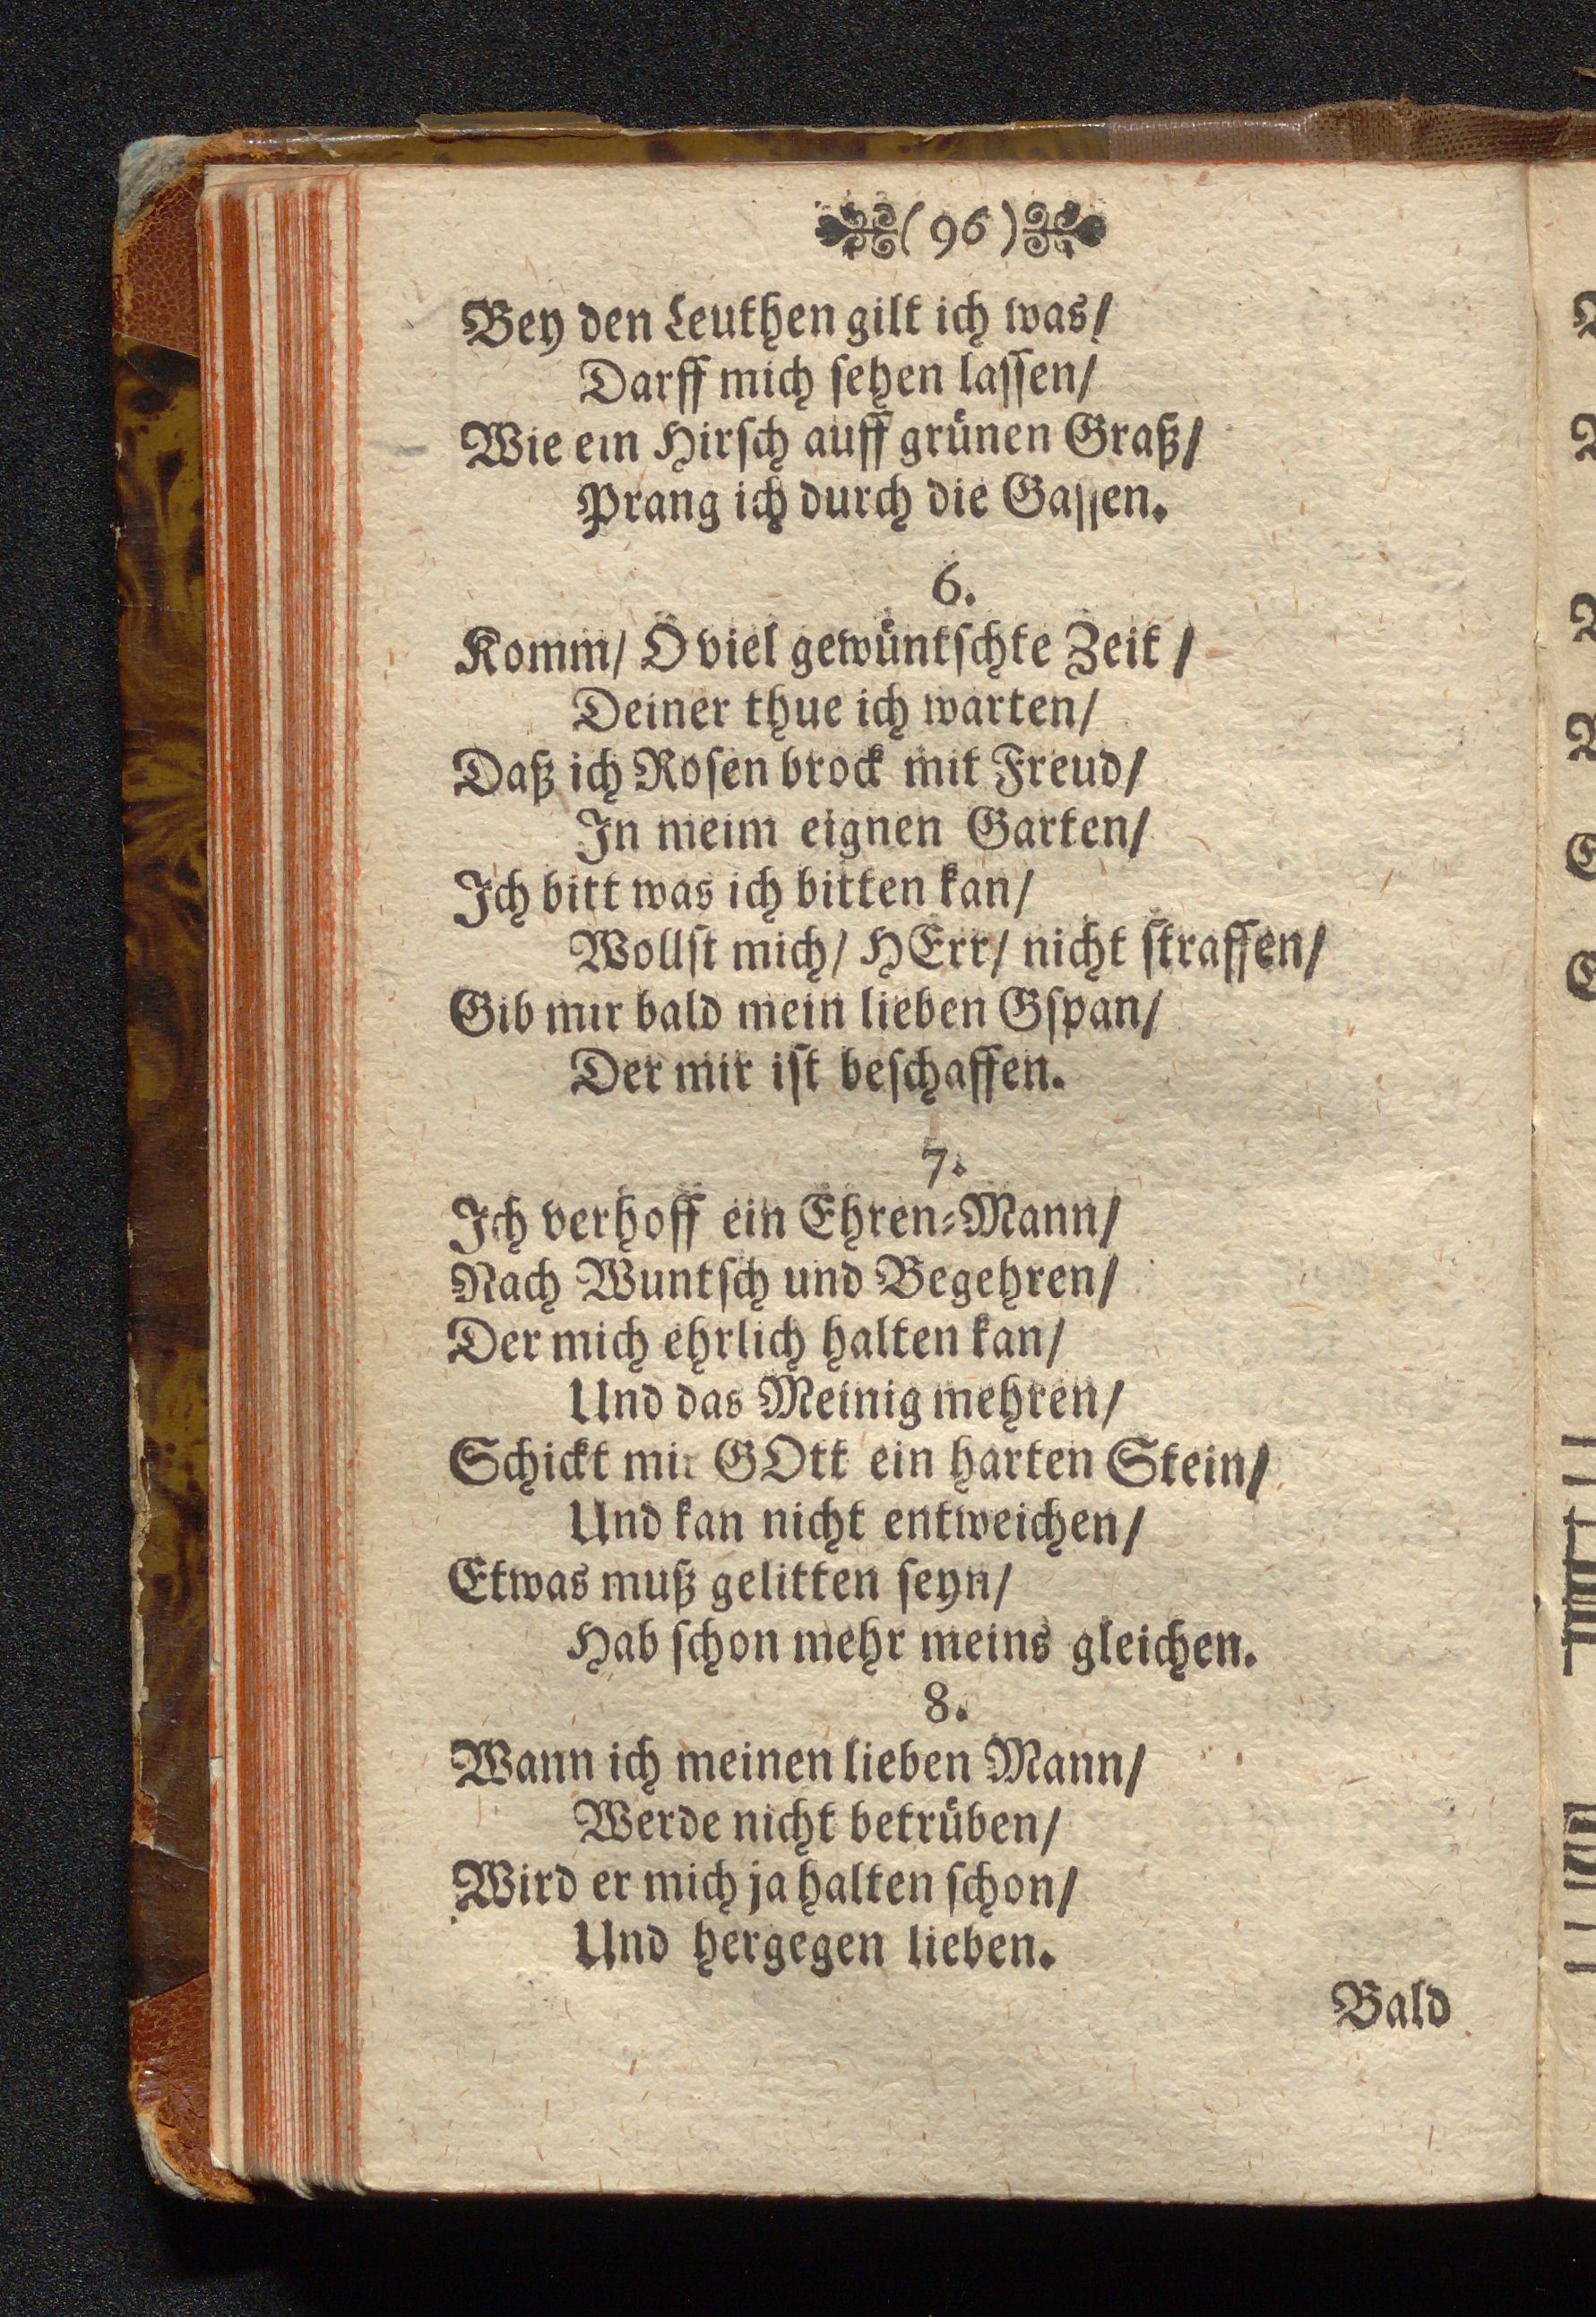 (96)
Bey den Leuthen gilt ich was/
Darff mich sehen lassen/
Wie ein Hirsch auff grünen Graß/
Prang ich durch die Gassen.
6.
Komm/ O viel gewüntschte Zeit/
Deiner thue ich warten/
Daß ich Rosen brock mit Freud/
In meim eignen Garten/
Ich bitt was ich bitten kan/
Wollst mich/ HErr/ nicht straffen/
Gib mir bald mein lieben Gspan/
Der mir ist beschaffen.
7.
Ich verhoff ein Ehren-Mann/
Nach Wuntsch und Begehren/
Der mich ehrlich halten kan/
Und das Meinig mehren/
Schickt mir GOtt ein harten Stein/
Und kan nicht entweichen/
Etwas muß gelitten seyn/
Hab schon mehr meins gleichen.
8.
Wann ich meinen lieben Mann/
Werde nicht betrüben/
Wird er mich ja halten schon/
Und hergegen lieben.
Bald